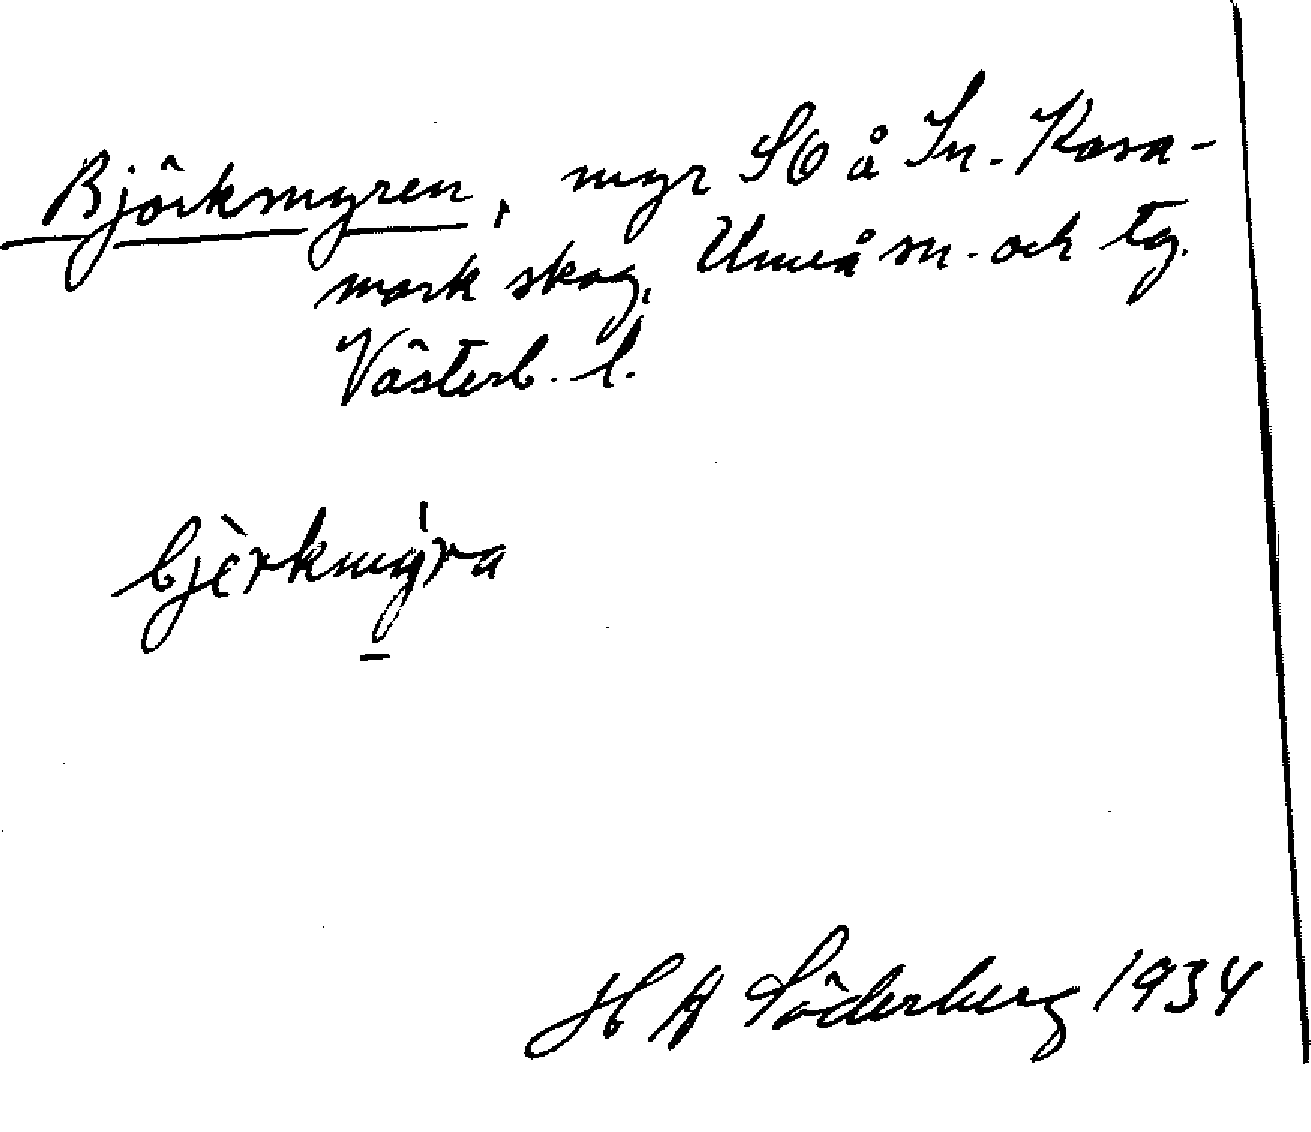 Björkmyren, myr SO å In.-Kasa-
mark skog, Umeå sn. och tg.
Västerb. l.
bjèrkmýra
H A Söderberg 1934